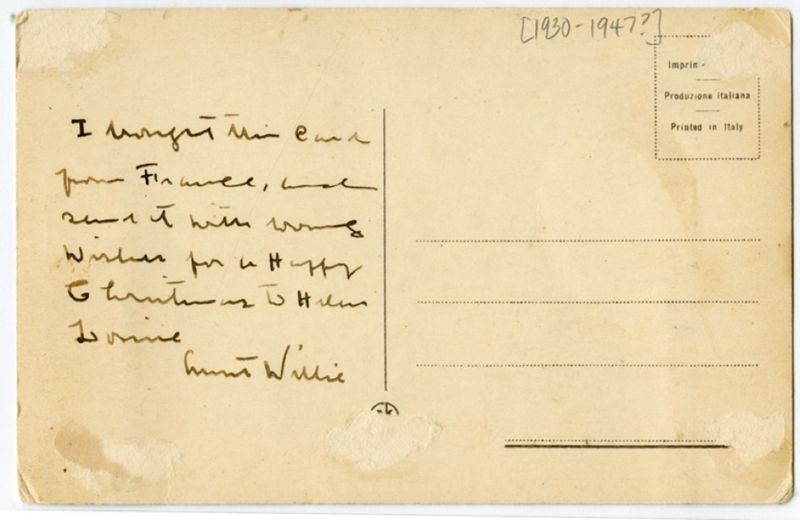 [1930-1947?]
Imprim
Produzione italiana
Printed in Italy
I brought this Card
from France, and
send it with loving
Wishes for a Happy
Christmas to Helen
Louise
Aunt Willie